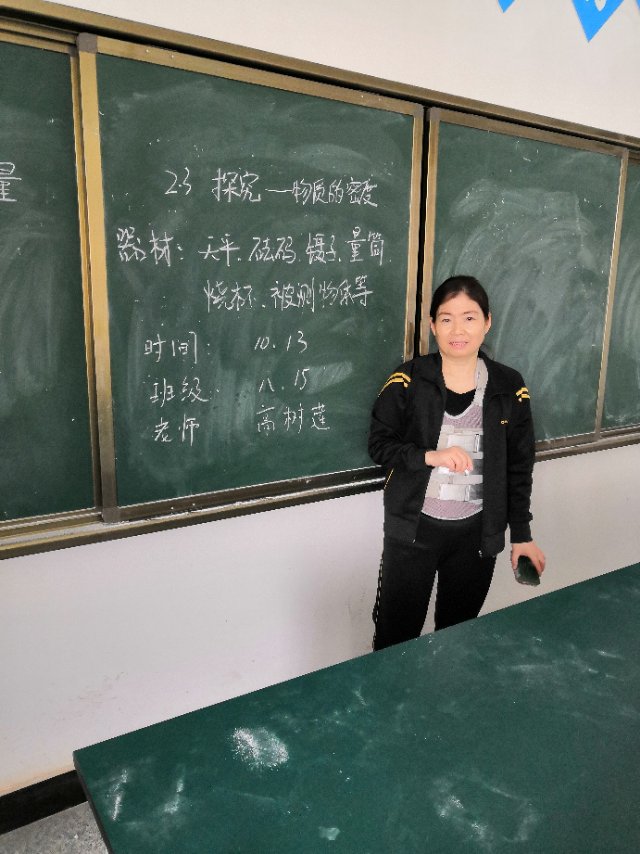 量
2.3 探究—物质的密度
器材：天平、砝码、镊子、量筒
烧杯、被测物体等
时间： 10.13
班级： 八.15
老师 高树莲